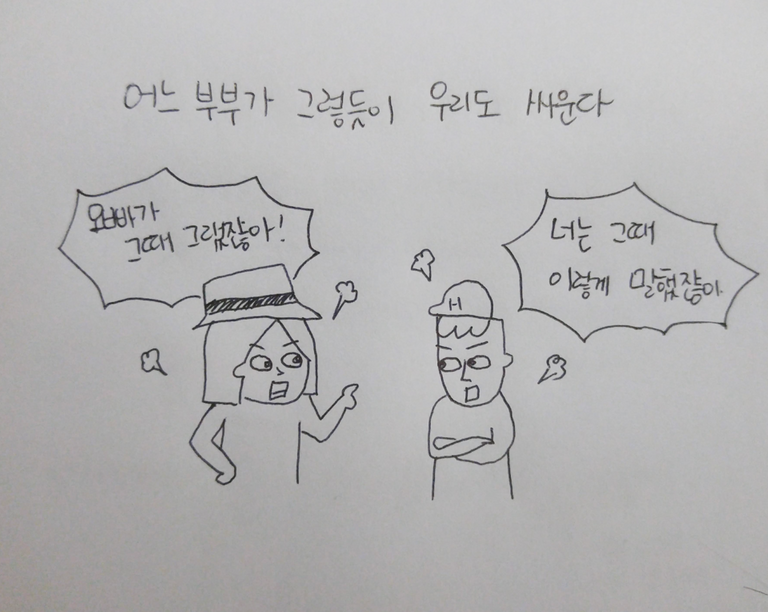 어느 부부가 그렇듯이 우리도 싸운다
오빠가
그때 그랬잖아!
너는 그때
이렇게 말했잖아
H